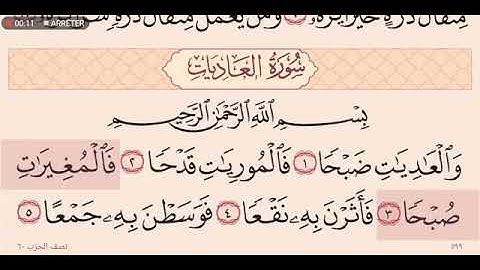 00:11 ARRÊTER
مِثْقَالَ ذَرَّةٍ خَيْرًا يَرَهُۥ ۝٧ وَمَن يَعْمَلْ مِثْقَالَ ذَرَّةٍ
سُورَةُ العَادِيَاتِ
بِسْمِ ٱللَّهِ ٱلرَّحْمَٰنِ ٱلرَّحِيمِ
وَٱلْعَٰدِيَٰتِ ضَبْحًا ۝١ فَٱلْمُورِيَٰتِ قَدْحًا ۝٢ فَٱلْمُغِيرَٰتِ
صُبْحًا ۝٣ فَأَثَرْنَ بِهِۦ نَقْعًا ۝٤ فَوَسَطْنَ بِهِۦ جَمْعًا ۝٥
٥٩٩ نصف الحزب ٦٠